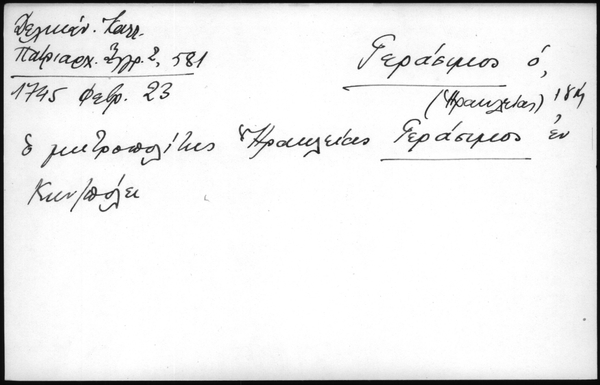 Δελικάν. Καλλ.
Πατριαρχ. Ἔγγρ. 2, 581
1745 Φεβρ. 23
Γεράσιμος ὁ,
(Ἡρακλείας)
ὁ μητροπολίτης Ἡρακλείας Γεράσιμος ἐν
Κων/πόλει